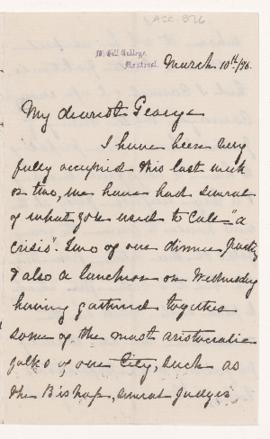 McGill College,
Montreal.
March 10th/76.
My dearest George
I have been very
fully occupied this last week
or two, we have had several
of what you used to call "a
crisis". Two of our dinner party
& also a luncheon on Wednesday
having gathered together
some of the most aristocratic
folks of our City, such as
the Bishop, several Judges,